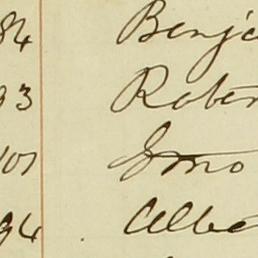 84 Benja
93 Rober
101 Jmo
94 Albe